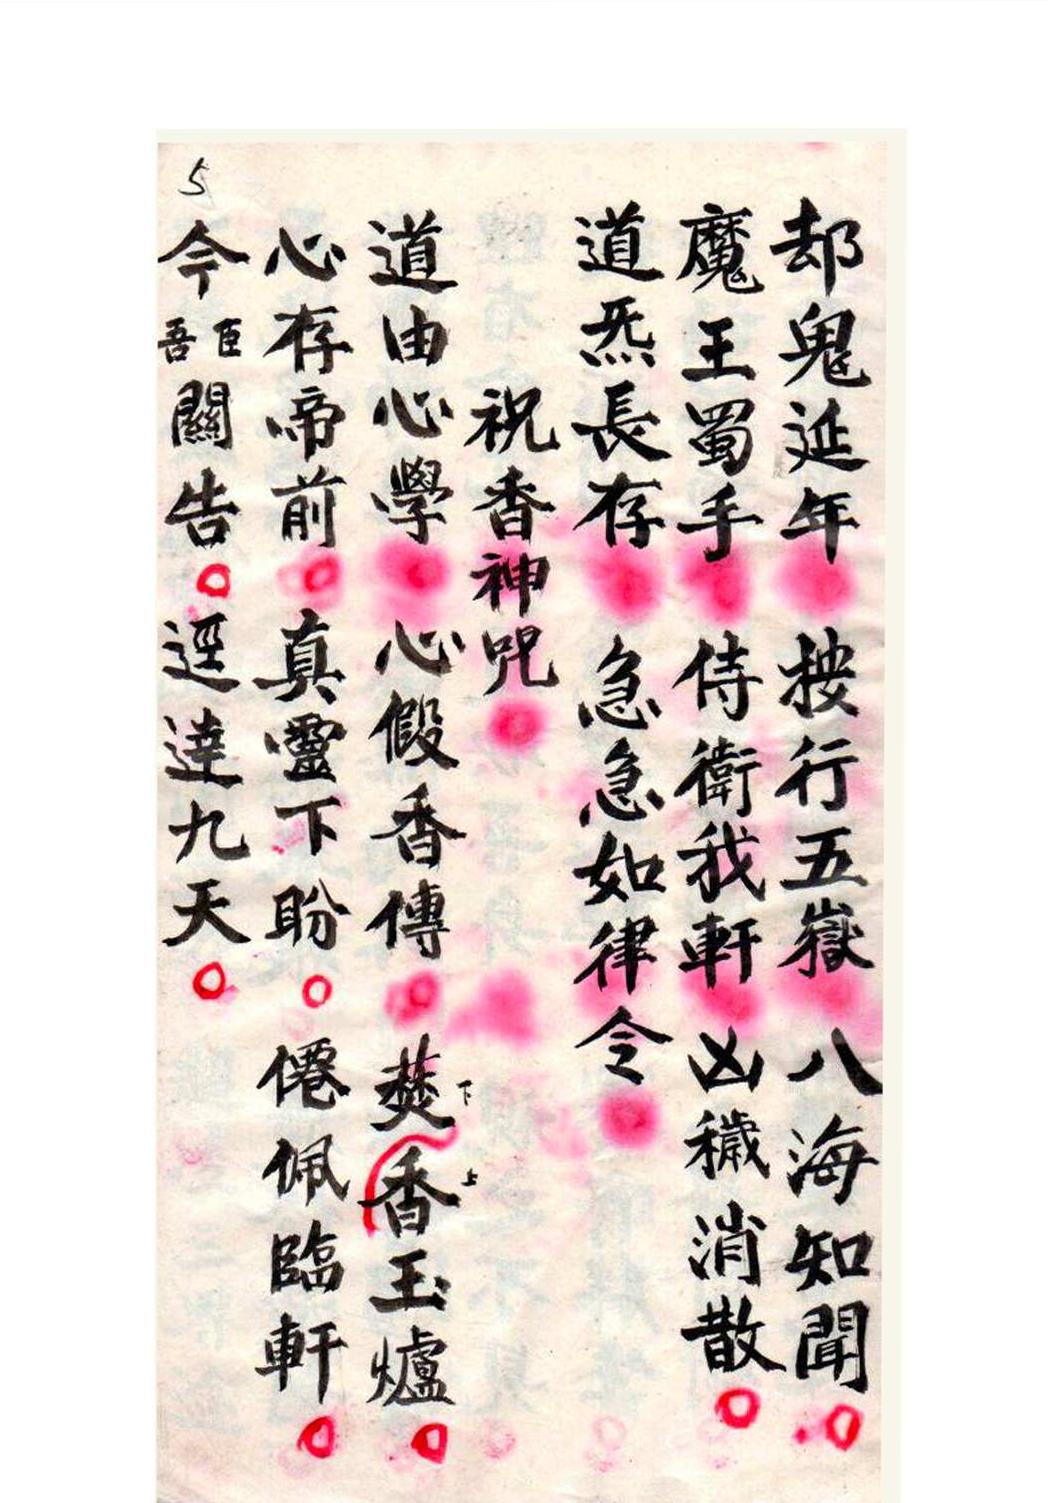 却鬼延年按行五嶽八海知聞
魔王蜀手侍衛我軒凶穢消散
道炁長存急急如律令
祝香神咒
道由心學心假香傳焚下香上玉爐
心存帝前真靈下盼僊佩臨軒
今臣吾關告逕達九天
5